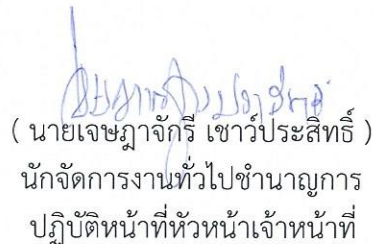 ( นายเจษฎาจักรี เชาว์ประสิทธิ์ )
นักจัดการงานทั่วไปชำนาญการ
ปฏิบัติหน้าที่หัวหน้าเจ้าหน้าที่